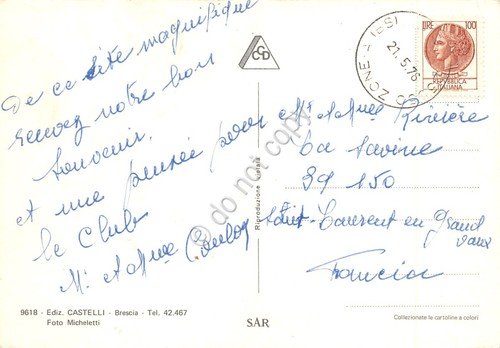 De ce site magnifique
recevez notre bon
souvenir.
et une pensée pour
le Club
Mr et Mme
CCD
ZONE - IESI
21.5.76
LIRE 100
REPUBBLICA
ITALIANA
Mr et Mme Rivière
La Savine
39 150
Saint-Laurent en Grand
vaux
Francia
Riproduzione vietata
© do not copy
9618 - Ediz. CASTELLI - Brescia - Tel. 42.467
Foto Micheletti
SAR
Collezionate le cartoline a colori